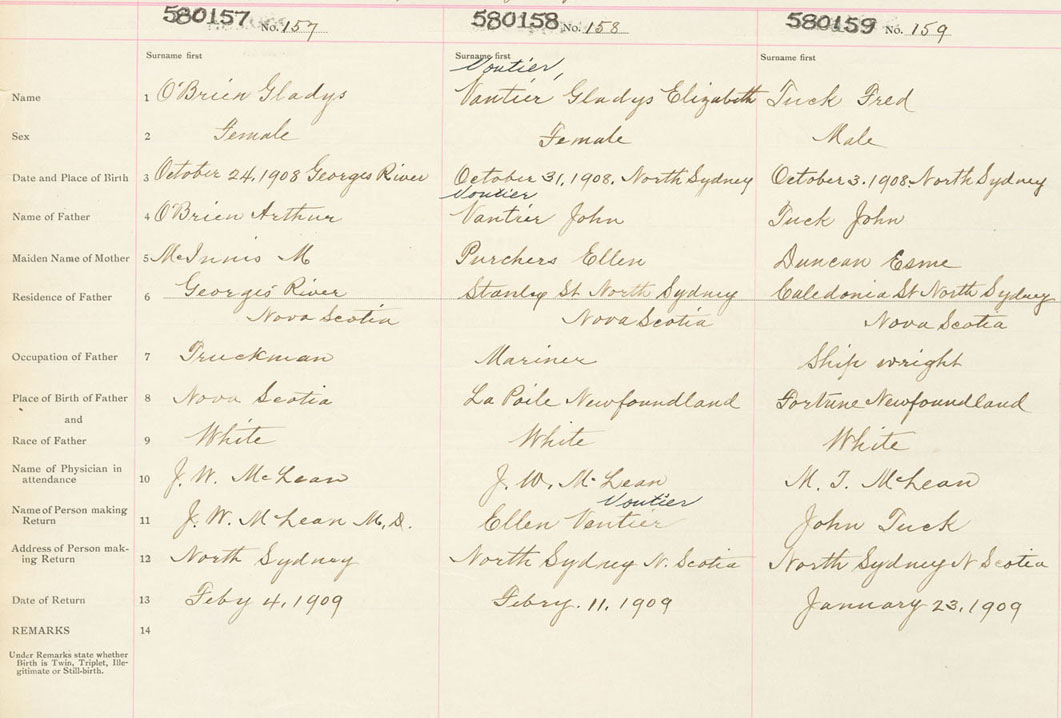 580157 No. 157 580158 No. 158 580159 No. 159
Surname first Surname first Surname first
Voutier,
Name 1 O'Brien Gladys Vantier Gladys Elizabeth Tuck Fred
Sex 2 Female Female Male
Date and Place of Birth 3 October 24, 1908 Georges River October 31, 1908. North Sydney October 3. 1908 North Sydney
Voutier
Name of Father 4 O'Brien Arthur Vantier John Tuck John
Maiden Name of Mother 5 McInnis M Purchers Ellen Duncan Esme
Residence of Father 6 Georges River Stanley St North Sydney Caledonia St North Sydney
Nova Scotia Nova Scotia Nova Scotia
Occupation of Father 7 Truckman Mariner Ship wright
Place of Birth of Father 8 Nova Scotia La Poile Newfoundland Fortune Newfoundland
and
Race of Father 9 White White White
Name of Physician in
attendance 10 J. W. McLean J. W. McLean M. T. McLean
Voutier
Name of Person making
Return 11 J. W. McLean M. D. Ellen Vantier John Tuck
Address of Person mak-
ing Return 12 North Sydney North Sydney N. Scotia North Sydney N Scotia
Date of Return 13 Feby 4, 1909 Febry. 11, 1909 January 23, 1909
REMARKS 14
Under Remarks state whether
Birth is Twin, Triplet, Ille-
gitimate or Still-birth.